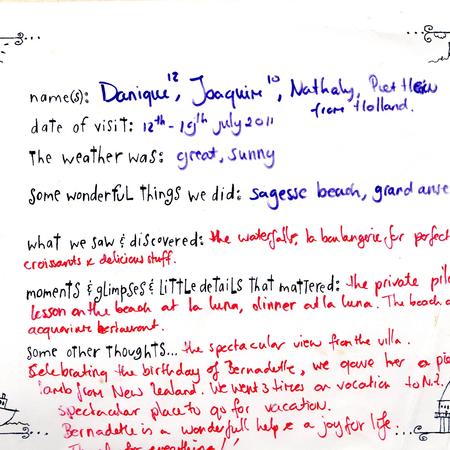 name(s): Danique 12, Joaquim 10, Nathaly, Piet Hein
from Holland.
date of visit: 12th - 19th july 2011
The weather was: great, sunny
some wonderful things we did: sagesse beach, grand anse
what we saw & discovered: the waterfalls, la boulangerie for perfect
croissants & delicious stuff.
moments & glimpses & little details that mattered: the private pil
lesson on the beach at la luna, dinner at la luna. The beach
acquarium restaurant.
some other thoughts... the spectacular view from the villa.
Celebrating the birthday of Bernadette, we gave her a pie
lamb from New Zealand. We went 3 times on vacation to N.Z.
spectacular place to go for vacation.
Bernadette is a wonderfull help & a joy for life.
for everything!